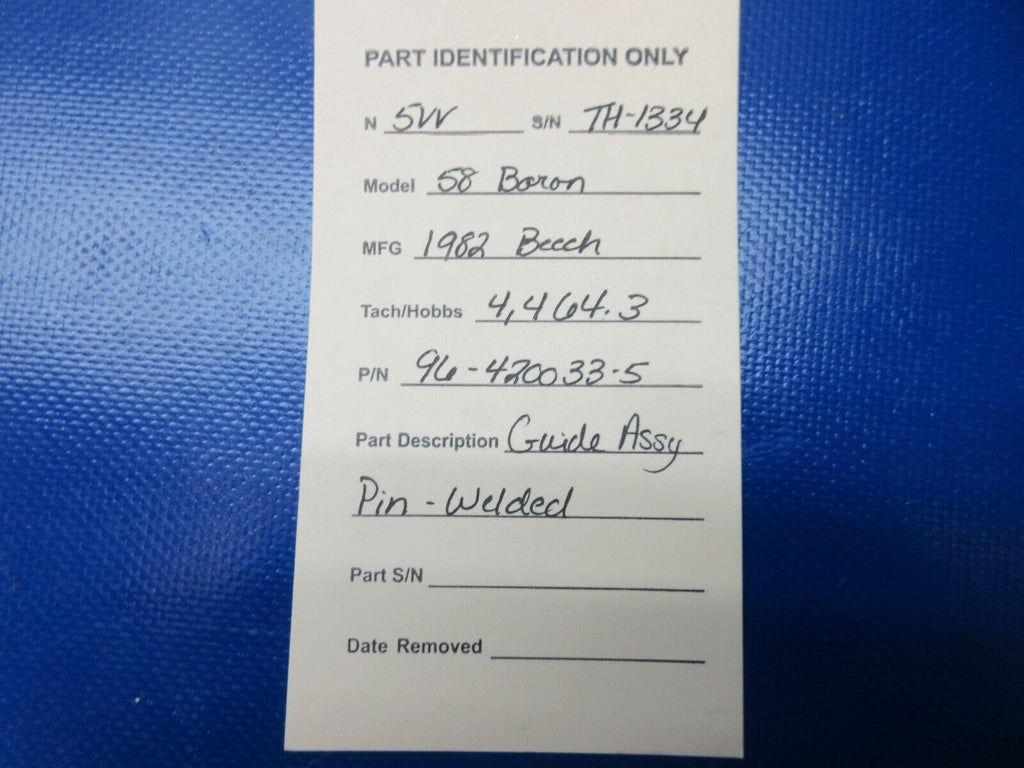 PART IDENTIFICATION ONLY
N 5VV S/N TH-1334
Model 58 Baron
MFG 1982 Beech
Tach/Hobbs 4,464.3
P/N 96-420033-5
Part Description Guide Assy
Pin - Welded
Part S/N
Date Removed